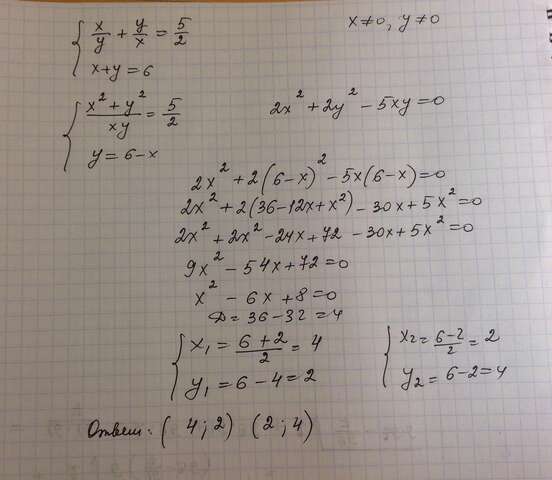 x/y + y/x = 5/2    x≠0, y≠0
x+y=6
(x² + y²)/xy = 5/2    2x² + 2y² − 5xy = 0
y = 6−x
2x² + 2(6−x)² − 5x(6−x) = 0
2x² + 2(36−12x+x²) − 30x + 5x² = 0
2x² + 2x² − 24x + 72 − 30x + 5x² = 0
9x² − 54x + 72 = 0
x² − 6x + 8 = 0
D = 36 − 32 = 4
x₁ = (6+2)/2 = 4    x₂ = (6−2)/2 = 2
y₁ = 6 − 4 = 2    y₂ = 6−2 = 4
Ответ: (4; 2) (2; 4)